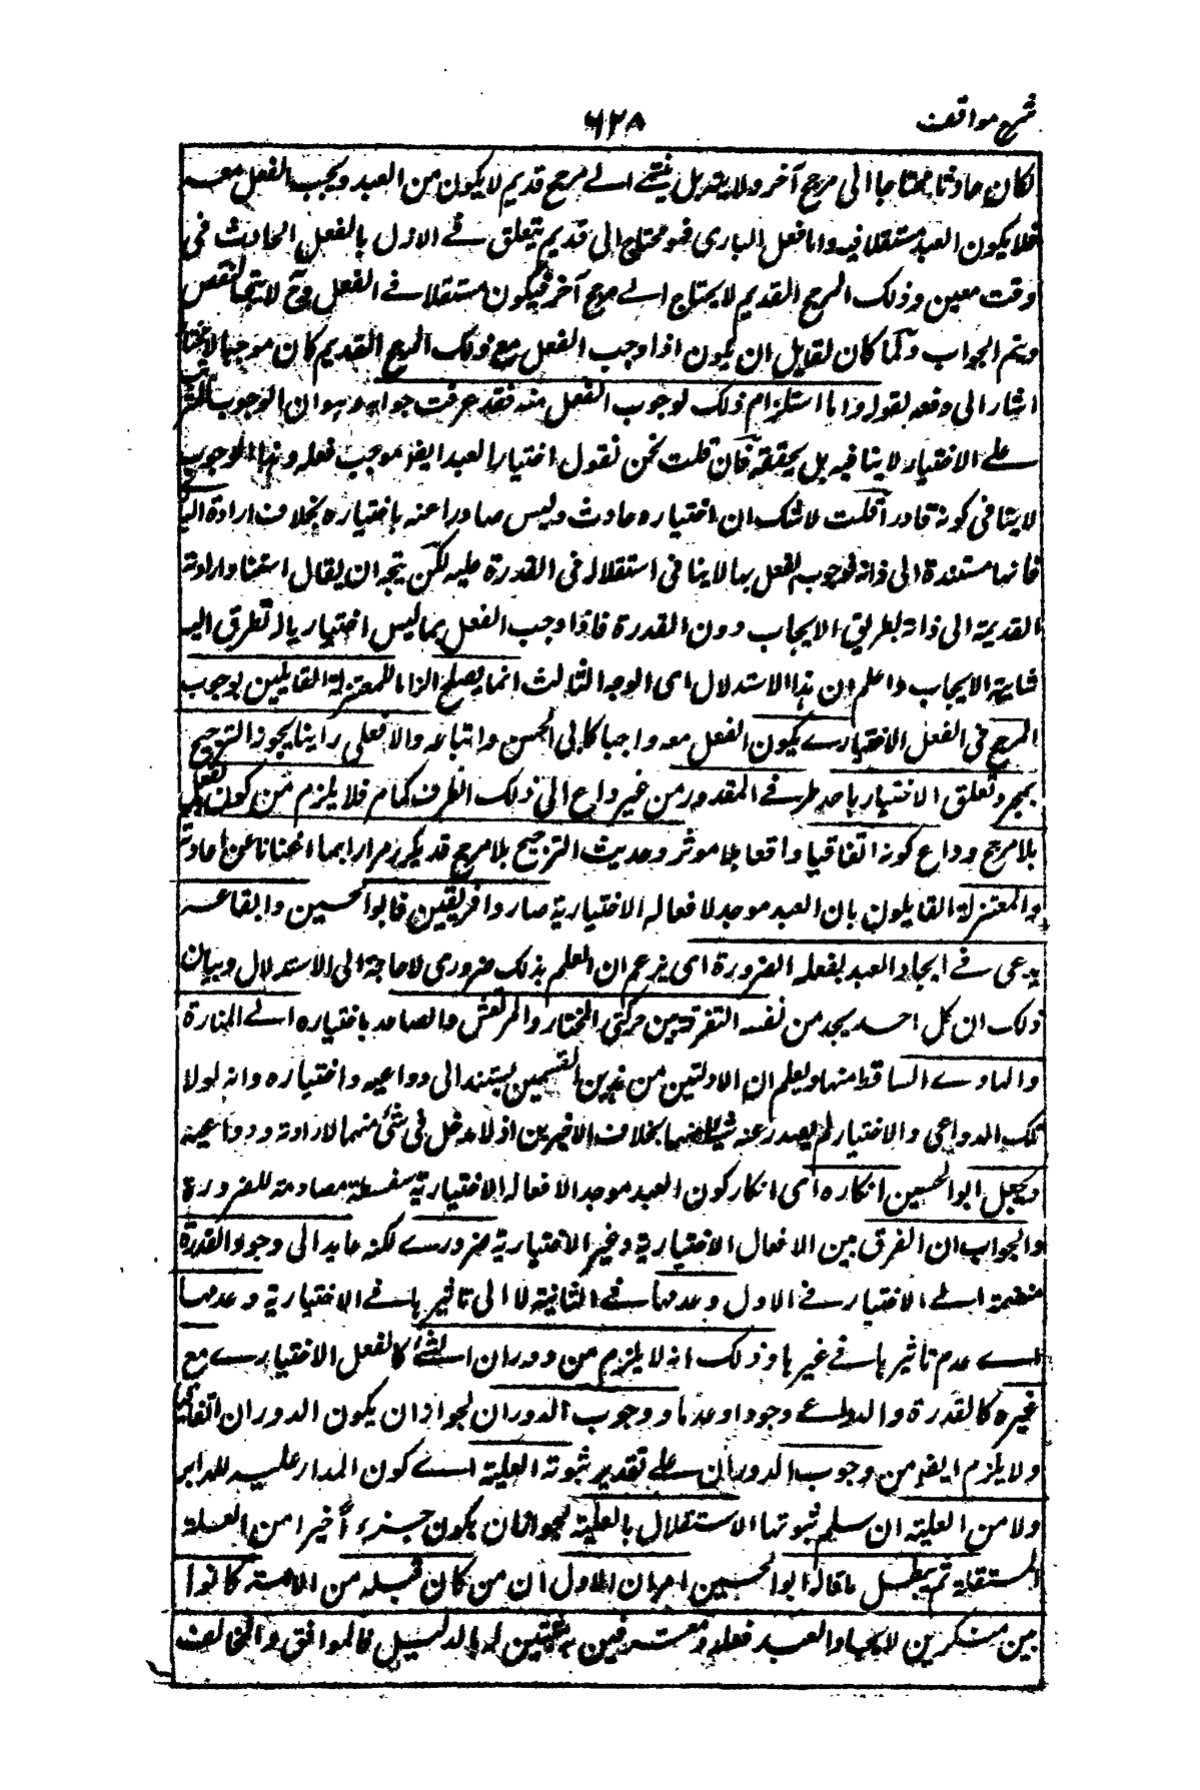 شرح مواقف
٦٢٨
لكان حادثا محتاجا الى مرجح آخر ولا يتسلسل بل ينتهے الے مرجح قديم لا يكون من العبد ويجب الفعل معه
فلا يكون العبد مستقلا فيه واما فعل البارى فهو محتاج الى قديم يتعلق فے الازل بالفعل الحادث فى
وقت معين وذلك المرجح القديم لا يحتاج الے مرجح آخر فيكون مستقلا فے الفعل وح لا يتجه النقض
ويتم الجواب ولما كان لقايل ان يقول اذا وجب الفعل مع ذلك المرجح القديم كان موجبا لا مختارا
اشار الى دفعه بقوله واما استلزام ذلك لوجوب الفعل منه فقد عرفت جوابه وهو ان الوجوب المترتب
علے الاختيار لا ينافيه بل يحققه فان قلت نحن نقول اختيار العبد ايضا موجب فعله وهذا الوجوب
لا ينافى كونه قادرا قلت لا شك ان اختياره حادث وليس صادرا عنه باختياره بخلاف ارادة البارى
فانها مستندة الى ذاته فوجوب الفعل بها لا ينافى استقلاله فى القدرة عليه لكن يتجه ان يقال استناد ارادته
القديمة الى ذاته بطريق الايجاب دون القدرة فاذا وجب الفعل بما ليس اختياريا له تطرق اليه
شايبة الايجاب واعلم ان هذا الاستدلال اى الوجه الثالث انما يصلح الزاما للمعتزلة القايلين بوجوب
المرجح فى الفعل الاختيارے يكون الفعل معه واجبا كابى الحسين واتباعه والا فعلى راينا يجوز الترجيح
بمجرد تعلق الاختيار باحد طرفے المقدور من غير داع الى ذلك الطرف كما مر فلا يلزم من كون الفعل
بلا مرجح وداع كونه اتفاقيا واقعا بلا موثر وحديث الترجيح بلا مرجح قد تكرر مرارا بما اغنانا عن اعادته
و المعتزلة القايلون بان العبد موجد لافعاله الاختيارية صاروا فريقين فابو الحسين واتباعه
يدعى فے ايجاد العبد لفعله الضرورة اى يزعم ان العلم بذلك ضرورى لا حاجة الى الاستدلال وبيان
ذلك ان كل احد يجد من نفسه التفرقة بين حركتى المختار والمرتعش والصاعد باختياره الے المنارة
والهاوے الساقط منها ويعلم ان الاولتين من هذين القسمين يستند الى دواعيه واختياره وانه لولا
تلك الدواعى والاختيار لم يصدر عنه شئ منهما بخلاف الاخيرين اذ لا مدخل فى شئ منهما لارادته ودواعيه
ويجعل ابو الحسين انكاره اى انكار كون العبد موجد الافعاله الاختيارية سفسطة مصادمة للضرورة
والجواب ان الفرق بين الافعال الاختيارية وغير الاختيارية ضرورے لكنه عايد الى وجود القدرة
منضمة الے الاختيار فے الاول وعدمها فے الثانية لا الى تاثيرها فے الاختيارية وعدمها
اے عدم تاثيرها فے غيرها وذلك انه لا يلزم من دوران الشئ كالفعل الاختيارے مع
غيره كالقدرة والدواعے وجودا وعدما وجوب الدوران لجواز ان يكون الدوران اتفاقيا
ولا يلزم ايضا من وجوب الدوران علے تقدير ثبوته العلية اے كون المدار عليه للداير
ولا من العلية ان سلم ثبوتها الاستقلال بالعلية لجواز ان يكون جزء اخيرا من العلة
المستقلة ثم يبطل ما قاله ابو الحسين امران الاول ان من كان قبله من الامة كانوا
بين منكرين لايجاد العبد فعله ومعترفين به مثبتين له بالدليل فالموافق والمخالف